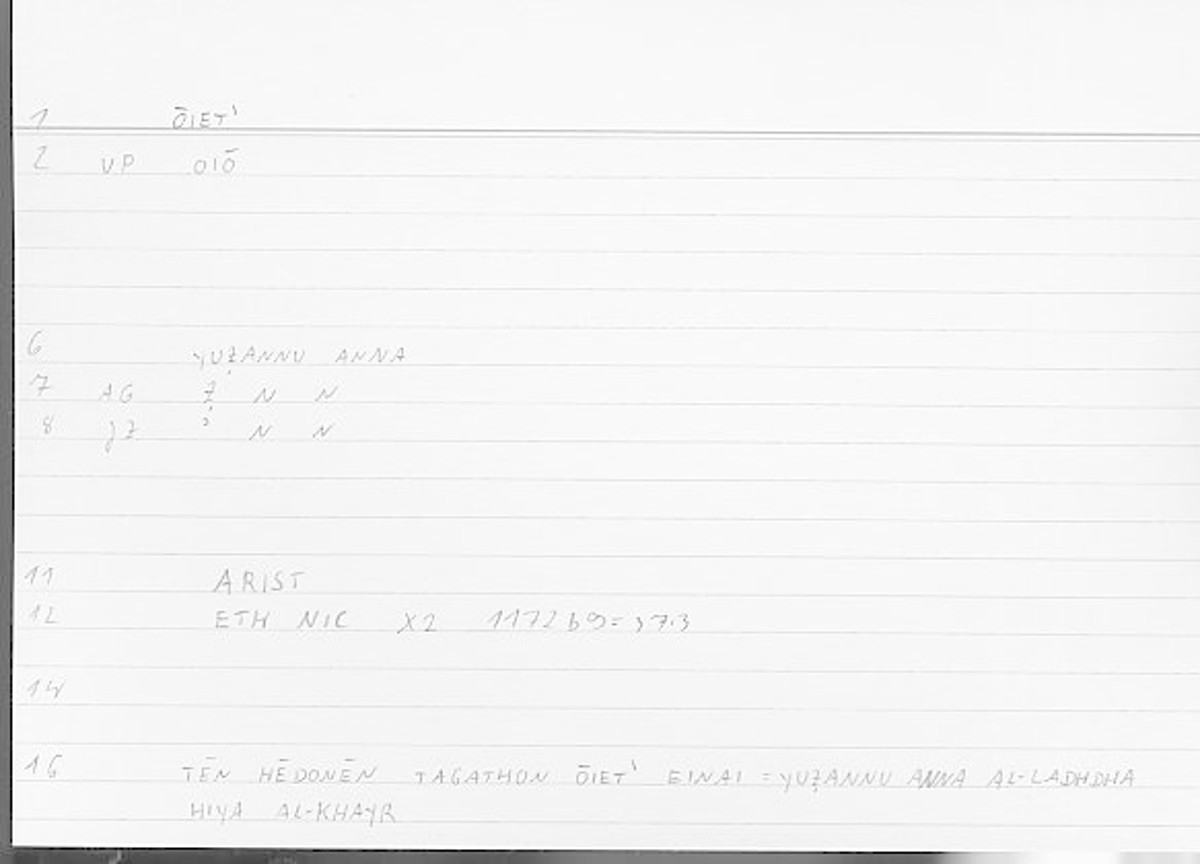 1 ŌIET'
2 VP OIŌ
6 YUẒANNU ANNA
7 AG Ẓ N N
8 JZ ' N N
11 ARIST
12 ETH NIC X2 1172 b9 = 37.3
14
16 TĒN HĒDONĒN TAGATHON ŌIET' EINAI = YUẒANNU ANNA AL-LADHDHA
HIYA AL-KHAYR